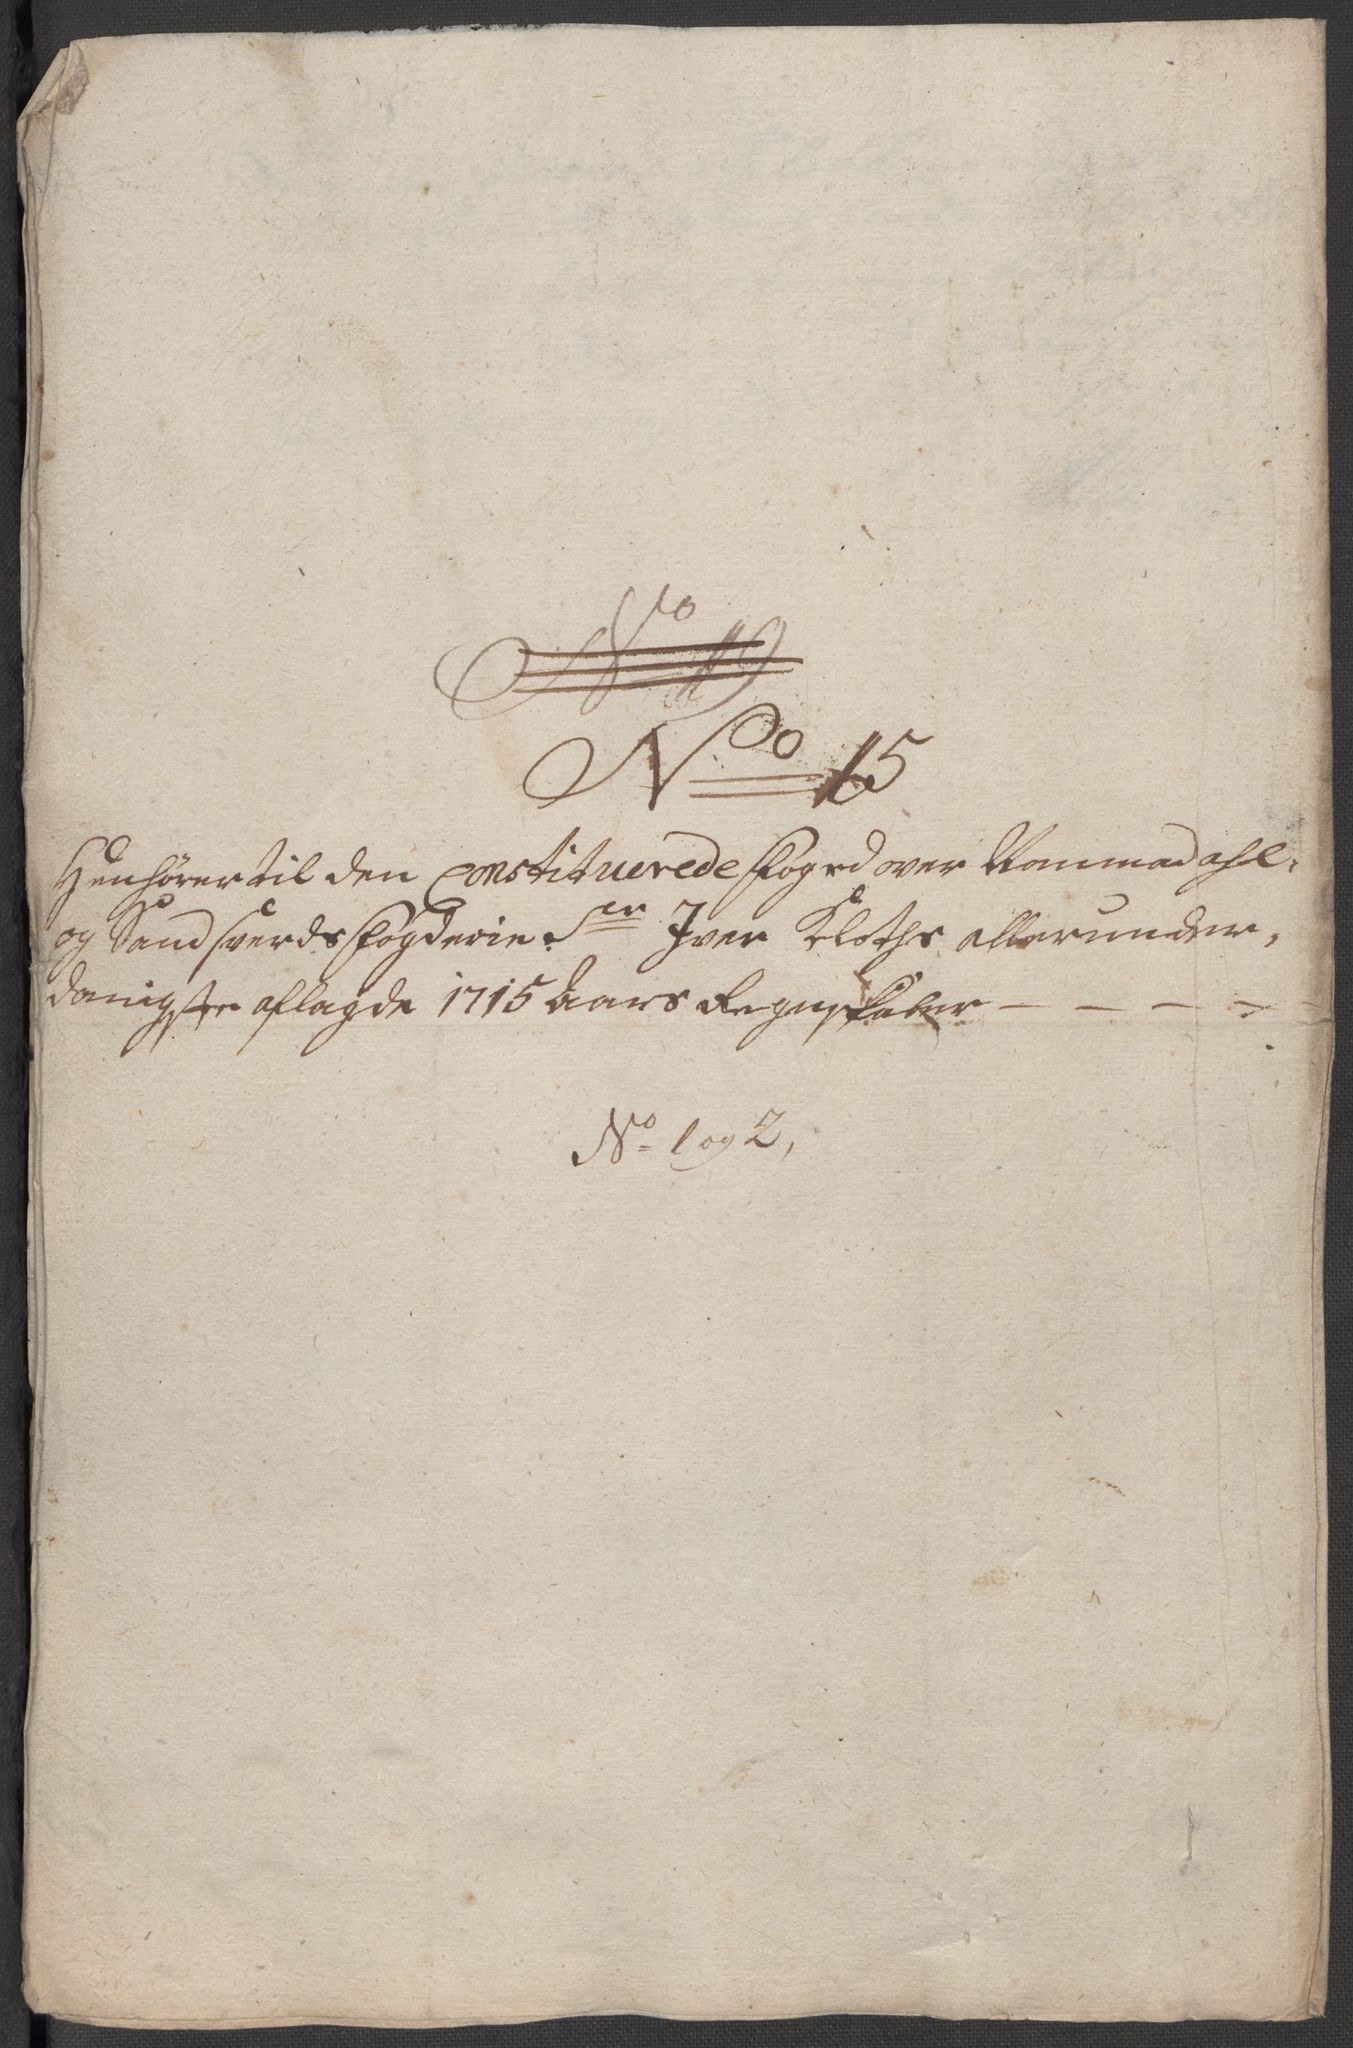 No 19
No 15
Henhører til den Constituerede Foged over Nommedahl-
og Sandsverds Fogderie. Sr Iver Kloths allerunder-
danigste aflagde 1715 Aars Regnskaber - - - -
No 1 og 2,